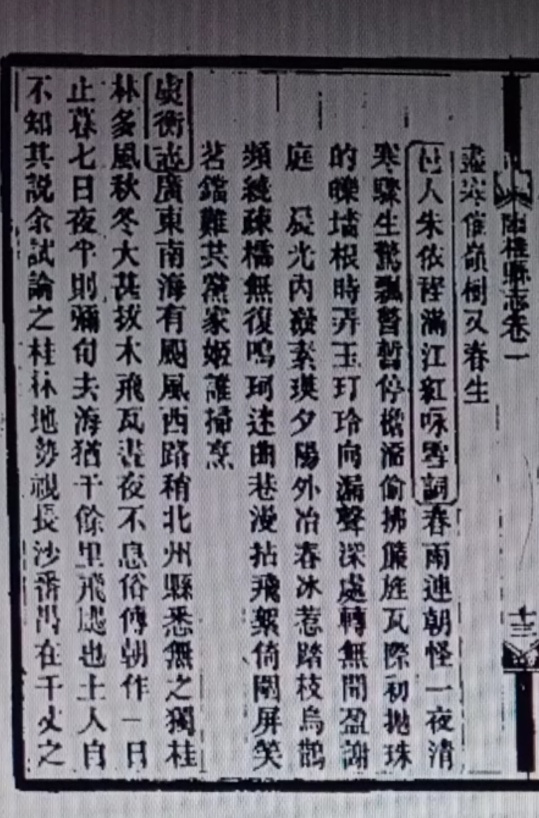 縣志卷一
十三
盡寒催嶺樹又春生
邑人朱依程滿江紅咏雪詞春雨連朝怪一夜清
寒驟生驚飄瞥暫停檐溜偷拂簾旌瓦際初拋珠
的皪墻根時弄玉玎玲向漏聲深處轉無聞盈謝
庭 晨光內凝素瑛夕陽外冶春冰惹踏枝烏鵲
頻繞疎櫺無復鳴珂迷曲巷漫拈飛絮倚圍屏笑
茗鐺難共黨家姬誰掃烹
虞衡志廣東南海有颶風西路稍北州縣悉無之獨桂
林多風秋冬大甚拔木飛瓦晝夜不息俗傳朝作一日
止暮七日夜半則彌旬夫海猶千餘里飛颶也土人自
不知其說余試論之桂林地勢視長沙番禺在千丈之